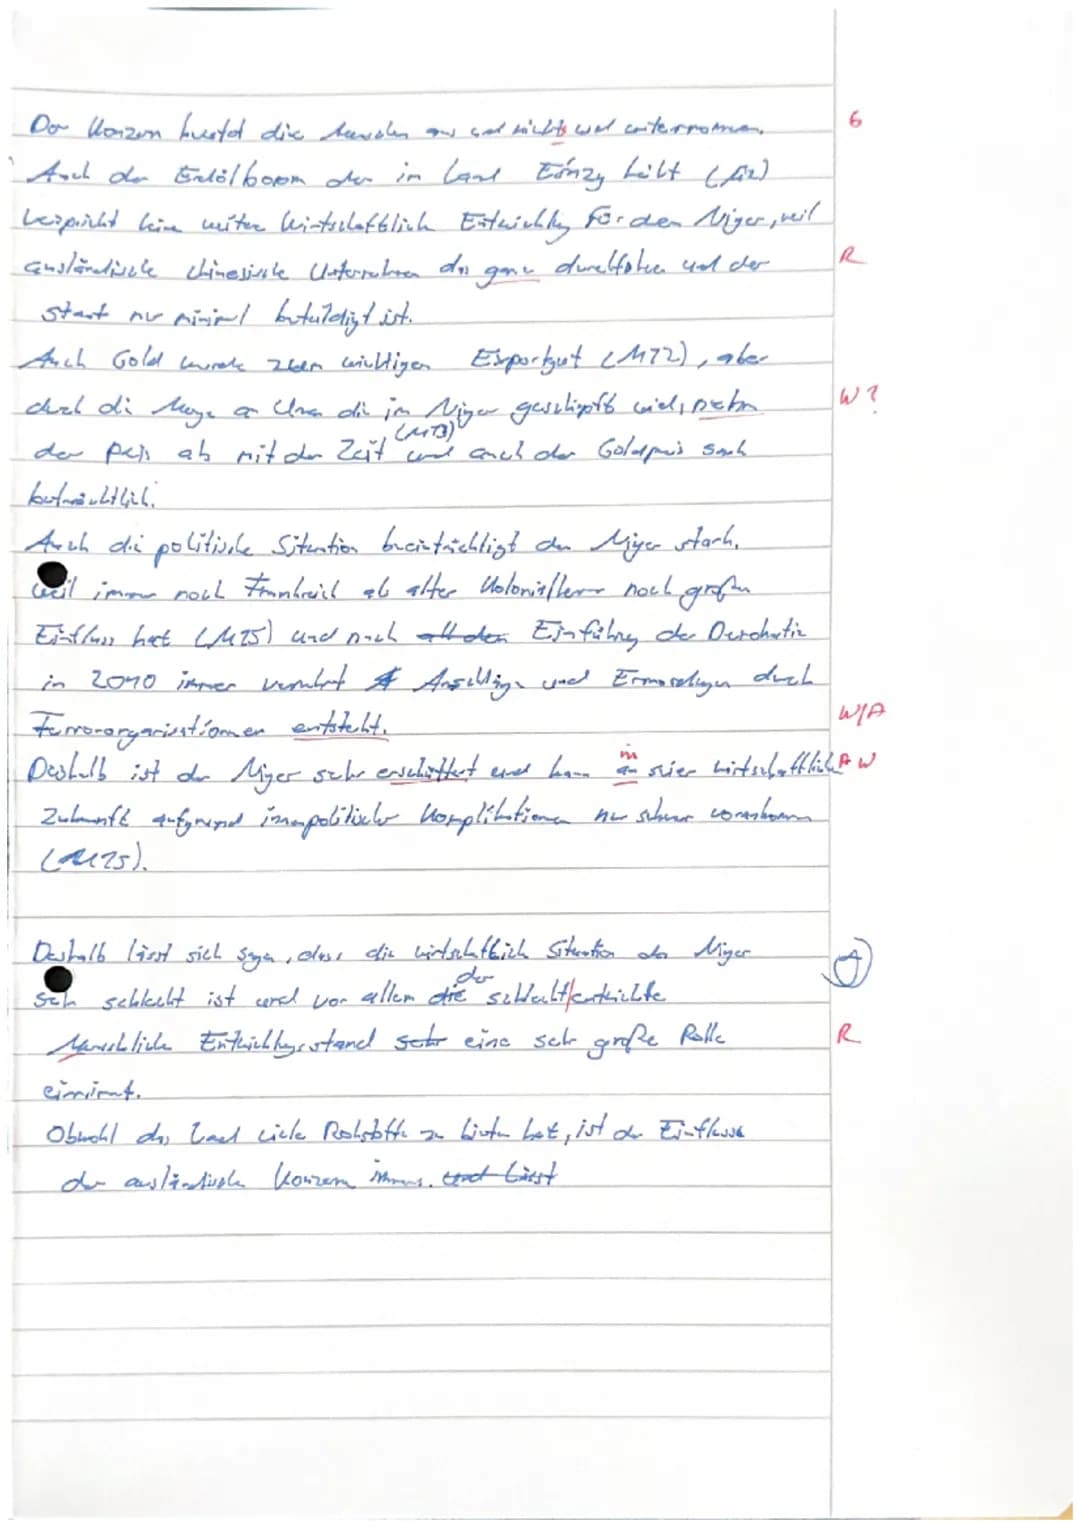 Der Konzern beutet die Menschen aus und nichts wird unternommen. G
Auch der Erdölboom der im Land Einzug hält
verspricht keine weitere wirtschaftlich Entwicklung für den Niger, weil
ausländische chinesische Unternehmen das ganze durchführen und der R
Staat nur minimal beteiligt ist.
Auch Gold wurde zum wichtigen Exportgut (M12), aber
durch die Menge an Uran die im Niger geschöpft wird, nahm W?
der Preis ab mit der Zeit (M13) und auch der Goldpreis sank
beträchtlich.
Auch die politische Situation beeinträchtigt den Niger stark,
weil immer noch Frankreich als alter Kolonialherr noch großen
Einfluss hat (M15) und nach der Einführung der Demokratie
in 2010 immer vermehrt Anschläge und Ermordungen durch
Terrororganisationen entsteht. W/A
Deshalb ist der Niger sehr erschüttert und kann an in seiner wirtschaftlichen A W
Zukunft aufgrund innenpolitischer Komplikationen nur schwer vorankommen
(M15).
Deshalb lässt sich sagen, dass die wirtschaftlich Situation des Niger
sehr schlecht ist und vor allem der schlecht entwickelte
Menschliche Entwicklungsstand eine sehr große Rolle R
einnimmt.
Obwohl das Land viele Rohstoffe zu bieten hat, ist der Einfluss
der ausländischen Konzerne immens. und lässt